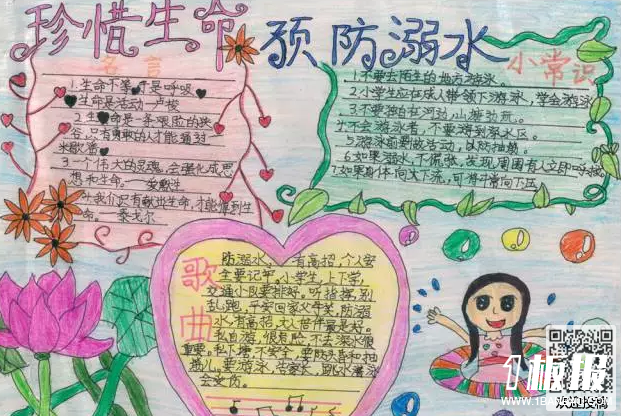 珍惜生命 预防溺水
名言
1.生命不等于是呼吸
生命是活动—卢梭
2.生命是一条艰险的峡
谷,只有勇敢的人才能通过
米歇潘
3.一个伟大的灵魂,会强化成思
想和生命。—爱默生
我们只有献出生命,才能得到生
命。—泰戈尔
小常识
1.不要去陌生的地方游泳。
2.小学生应在成人带领下游泳,学会游泳
3.不要独自在河边,山塘边
4.不会游泳者,不要游到深水区。
5.游泳前要做活动,以防抽筋。
6.如果溺水,不慌张,发现周围有人立即
7.如果身体向下沉,可将手掌向下压
歌曲
防溺水,有高招,个人安
全要记牢,小学生,上下学,
交通小队要排好。听指挥,别
乱跑,平安回家父母笑,防溺
水,有高招,大人陪伴最是好。
私自游,很冒险,
重。私下塘不安全,
要游泳,
1板报
WWW.1BANBAO.COM